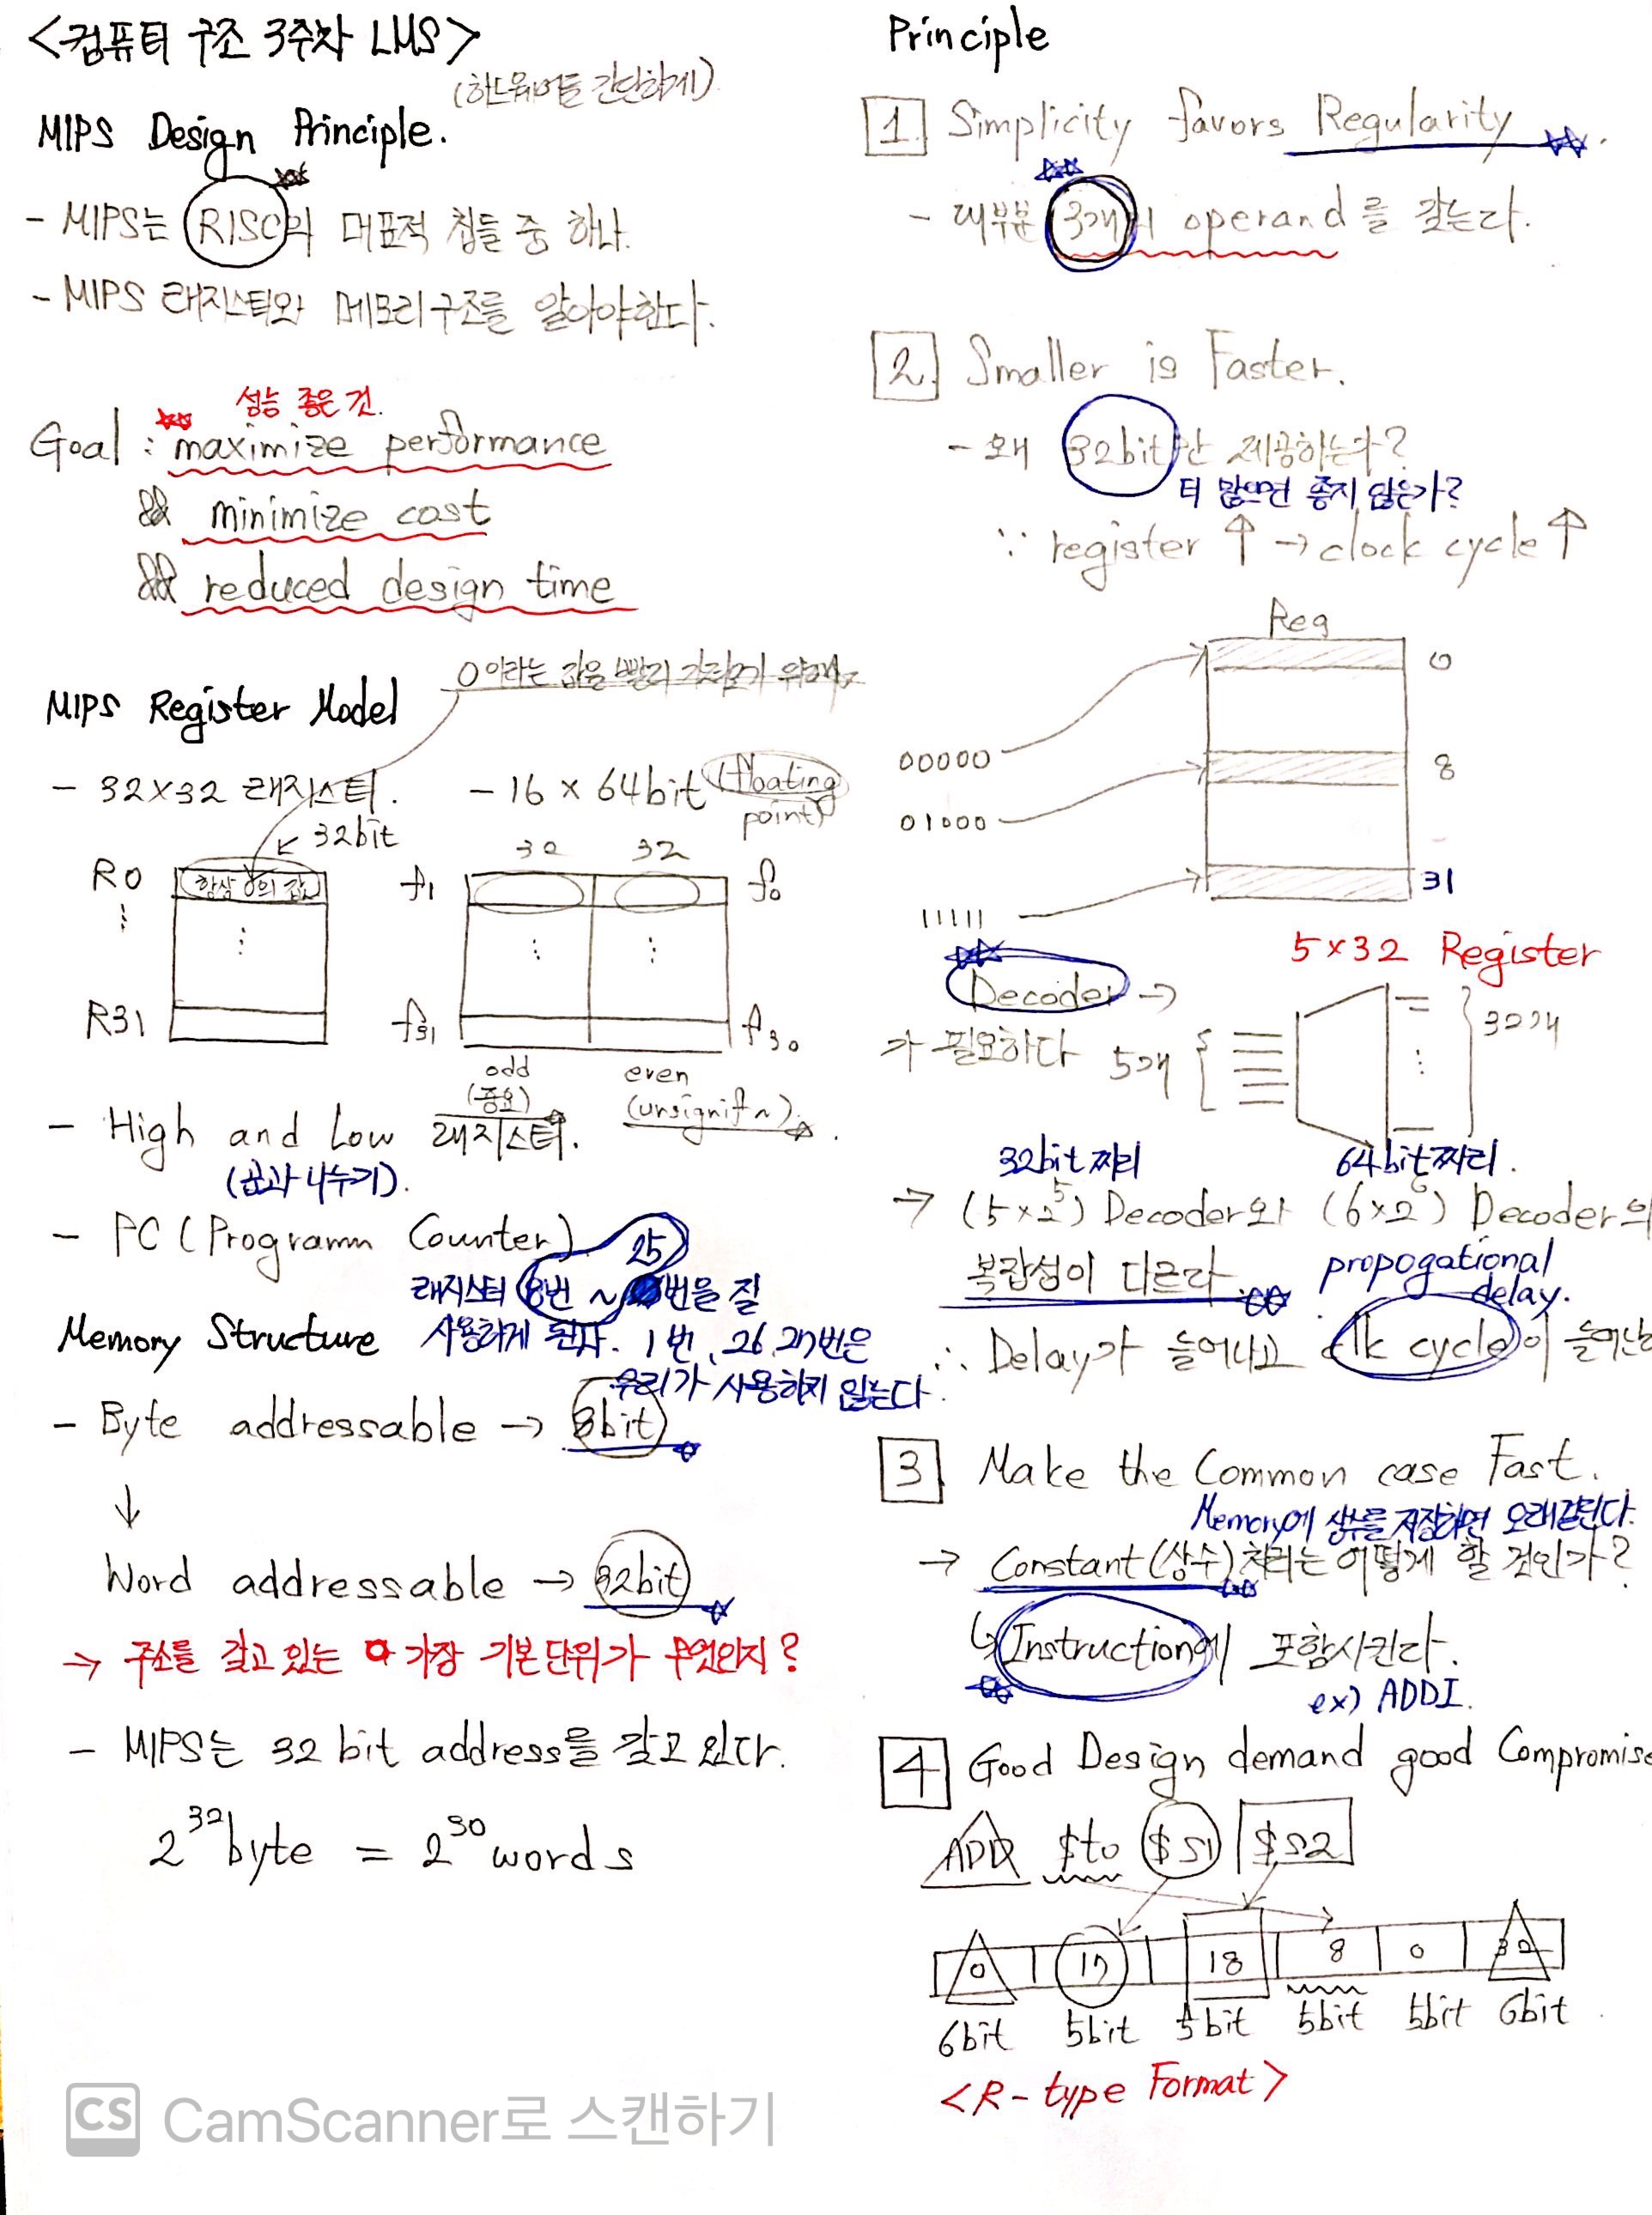 <컴퓨터 구조 3주차 LMS>
(하드웨어를 간단하게)
MIPS Design Principle.
- MIPS는 RISC의 대표적 칩들 중 하나.
- MIPS 래지스터와 메모리구조를 알아야한다.
성능 좋은 것.
Goal : maximize performance
&& minimize cost
&& reduced design time
0이라는 값을 빨리 가져오기 위해
MIPS Register Model
- 32×32 래지스터.
32bit
R0
항상 0의 값
⋮
R31
- 16 × 64bit (floating
point)
32
32
f1
f0
f31
f30
odd
(중요)
even
(unsignif~).
- High and Low 래지스터.
(곱과 나누기).
- PC (Programm Counter)
25
래지스터 8번 ~ 번을 잘
사용하게 된다. 1번, 26, 27번은
우리가 사용하지 않는다.
Memory Structure
- Byte addressable → 8bit
↓
Word addressable → 32bit
→ 주소를 갖고 있는 가장 기본단위가 무엇인지?
- MIPS는 32 bit address를 갖고 있다.
2^32 byte = 2^30 words
CS CamScanner로 스캔하기
Principle
1. Simplicity favors Regularity.
- 대부분 3개의 operand를 갖는다.
2. Smaller is Faster.
- 왜 32bit만 제공하는가?
더 많으면 좋지 않은가?
∵ register ↑ → clock cycle ↑
Reg
0
00000
8
01000
31
11111
5×32 Register
Decoder →
가 필요하다
5개
32개
32bit 짜리
64bit 짜리.
→ (5×2^5) Decoder와 (6×2^6) Decoder의
복잡성이 다르다.
propogational
delay.
∴ Delay가 늘어나고 clk cycle이 늘어난
3 Make the Common case Fast.
Memory에 상수를 저장하면 오래걸린다.
→ Constant(상수)처리는 어떻게 할 것인가?
↳ Instruction에 포함시킨다.
ex) ADDI.
4 Good Design demand good Compromise
ADD $to $S1 $S2
0 17 18 8 0 32
6bit 5bit 5bit 5bit 5bit 6bit
<R-type Format>